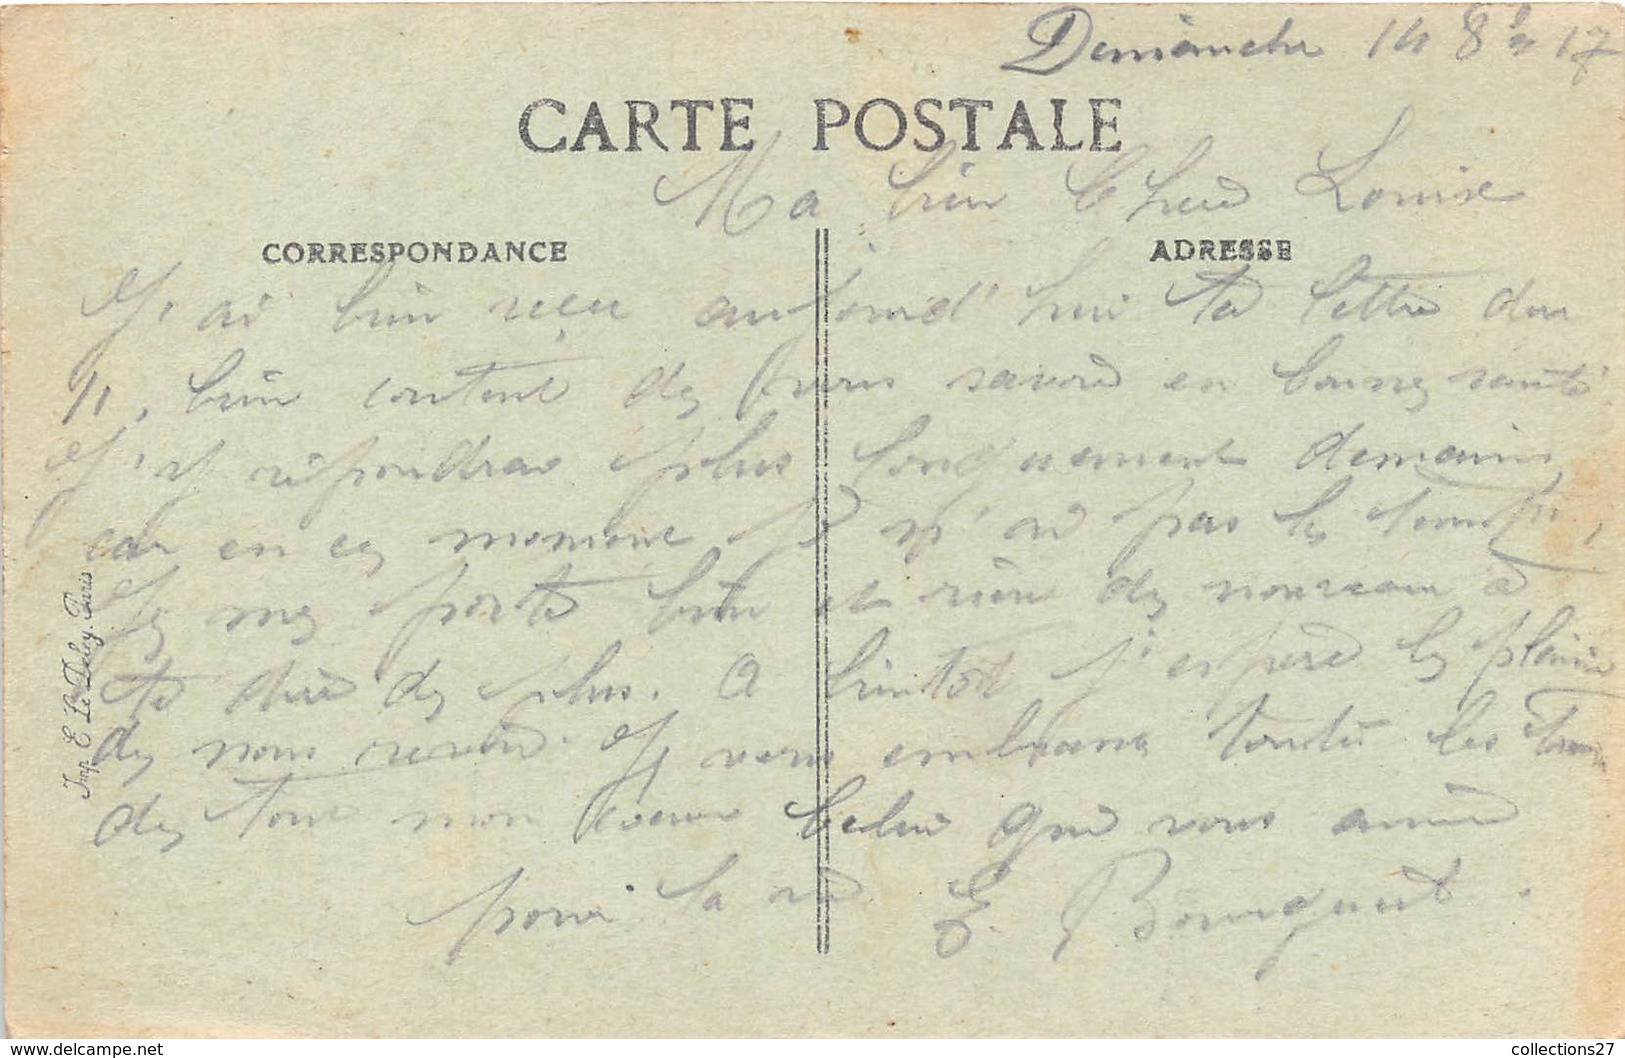 Dimanche 14 8bre 17
CARTE POSTALE
Ma bien Chere Louise
CORRESPONDANCE
ADRESSE
J'ai bien reçu aujourd'hui ta lettre du
11, bien content de vous savoir en bonne santé
J'y répondrai plus longuement demain,
car en ce moment je n'ai pas le temps,
Je me porte bien et rien de nouveau à
te dire de plus. A bientot j'espere le plaisir
de nous revoir. Je vous embrasse toutes les trois
de tout mon coeur Celui qui vous aime
pour la vie E. Bourquent.
Imp. E. Le Deley. Paris
www.delcampe.net
collections27